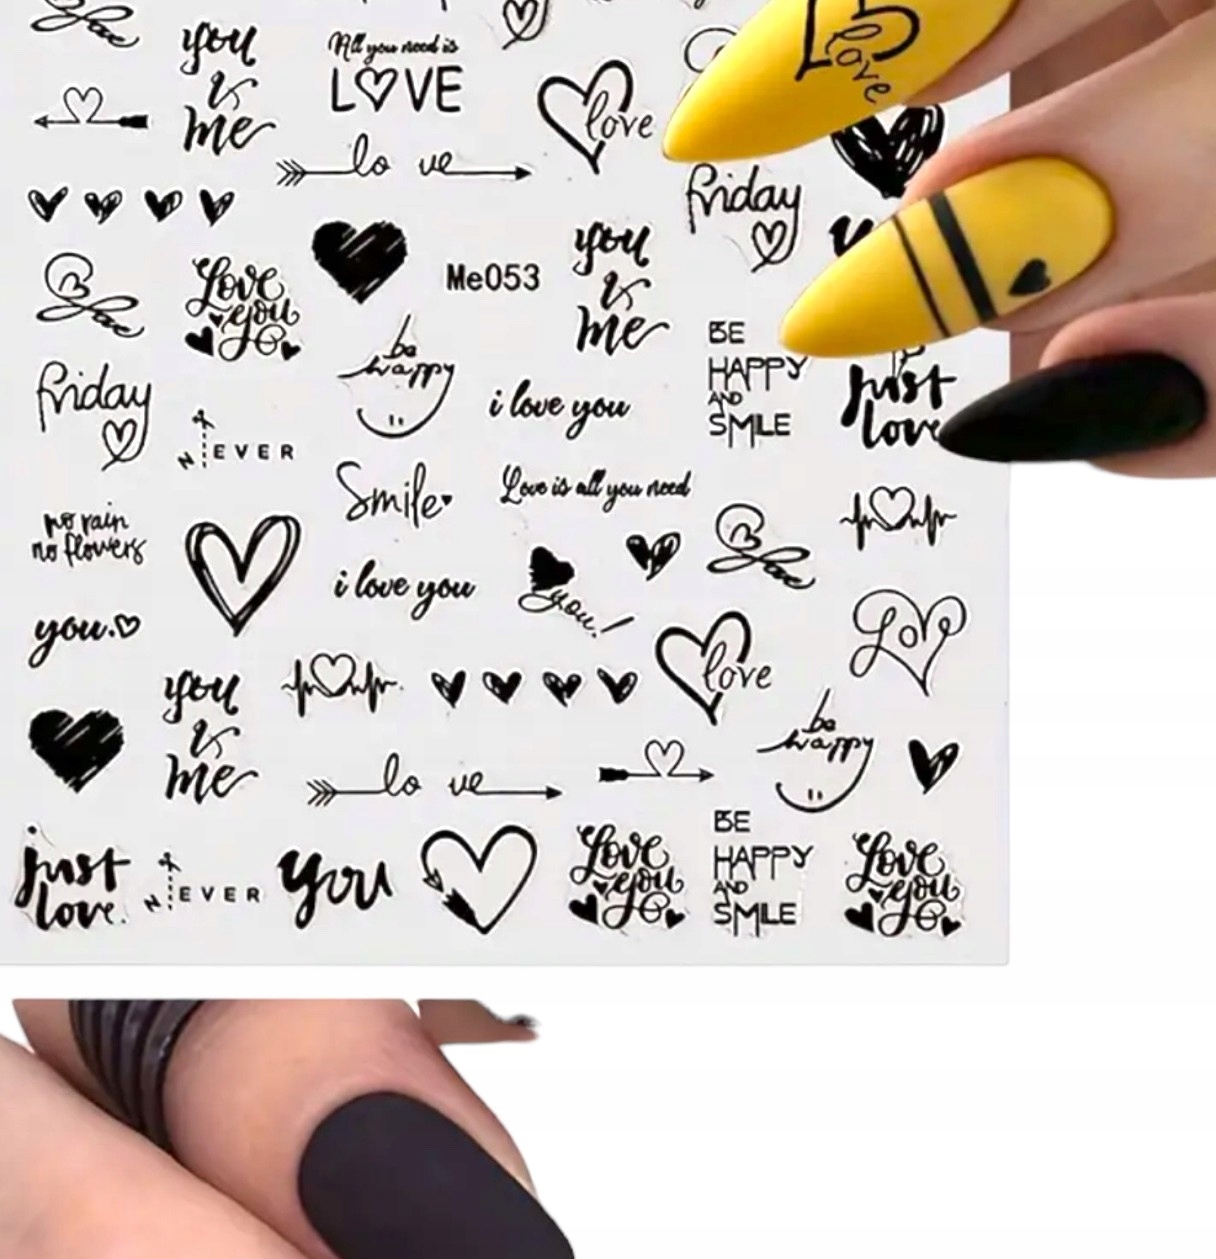 you
&
me
All you need is
LOVE
love
love
love
friday
Love
you
Me053
you
&
me
BE
HAPPY
AND
SMILE
be
happy
friday
i love you
just
love
NEVER
Smile
Love is all you need
no rain
no flowers
i love you
you!
you.
Love
love
you
&
me
be
happy
love
just
love.
NEVER
you
Love
you
BE
HAPPY
AND
SMILE
Love
you